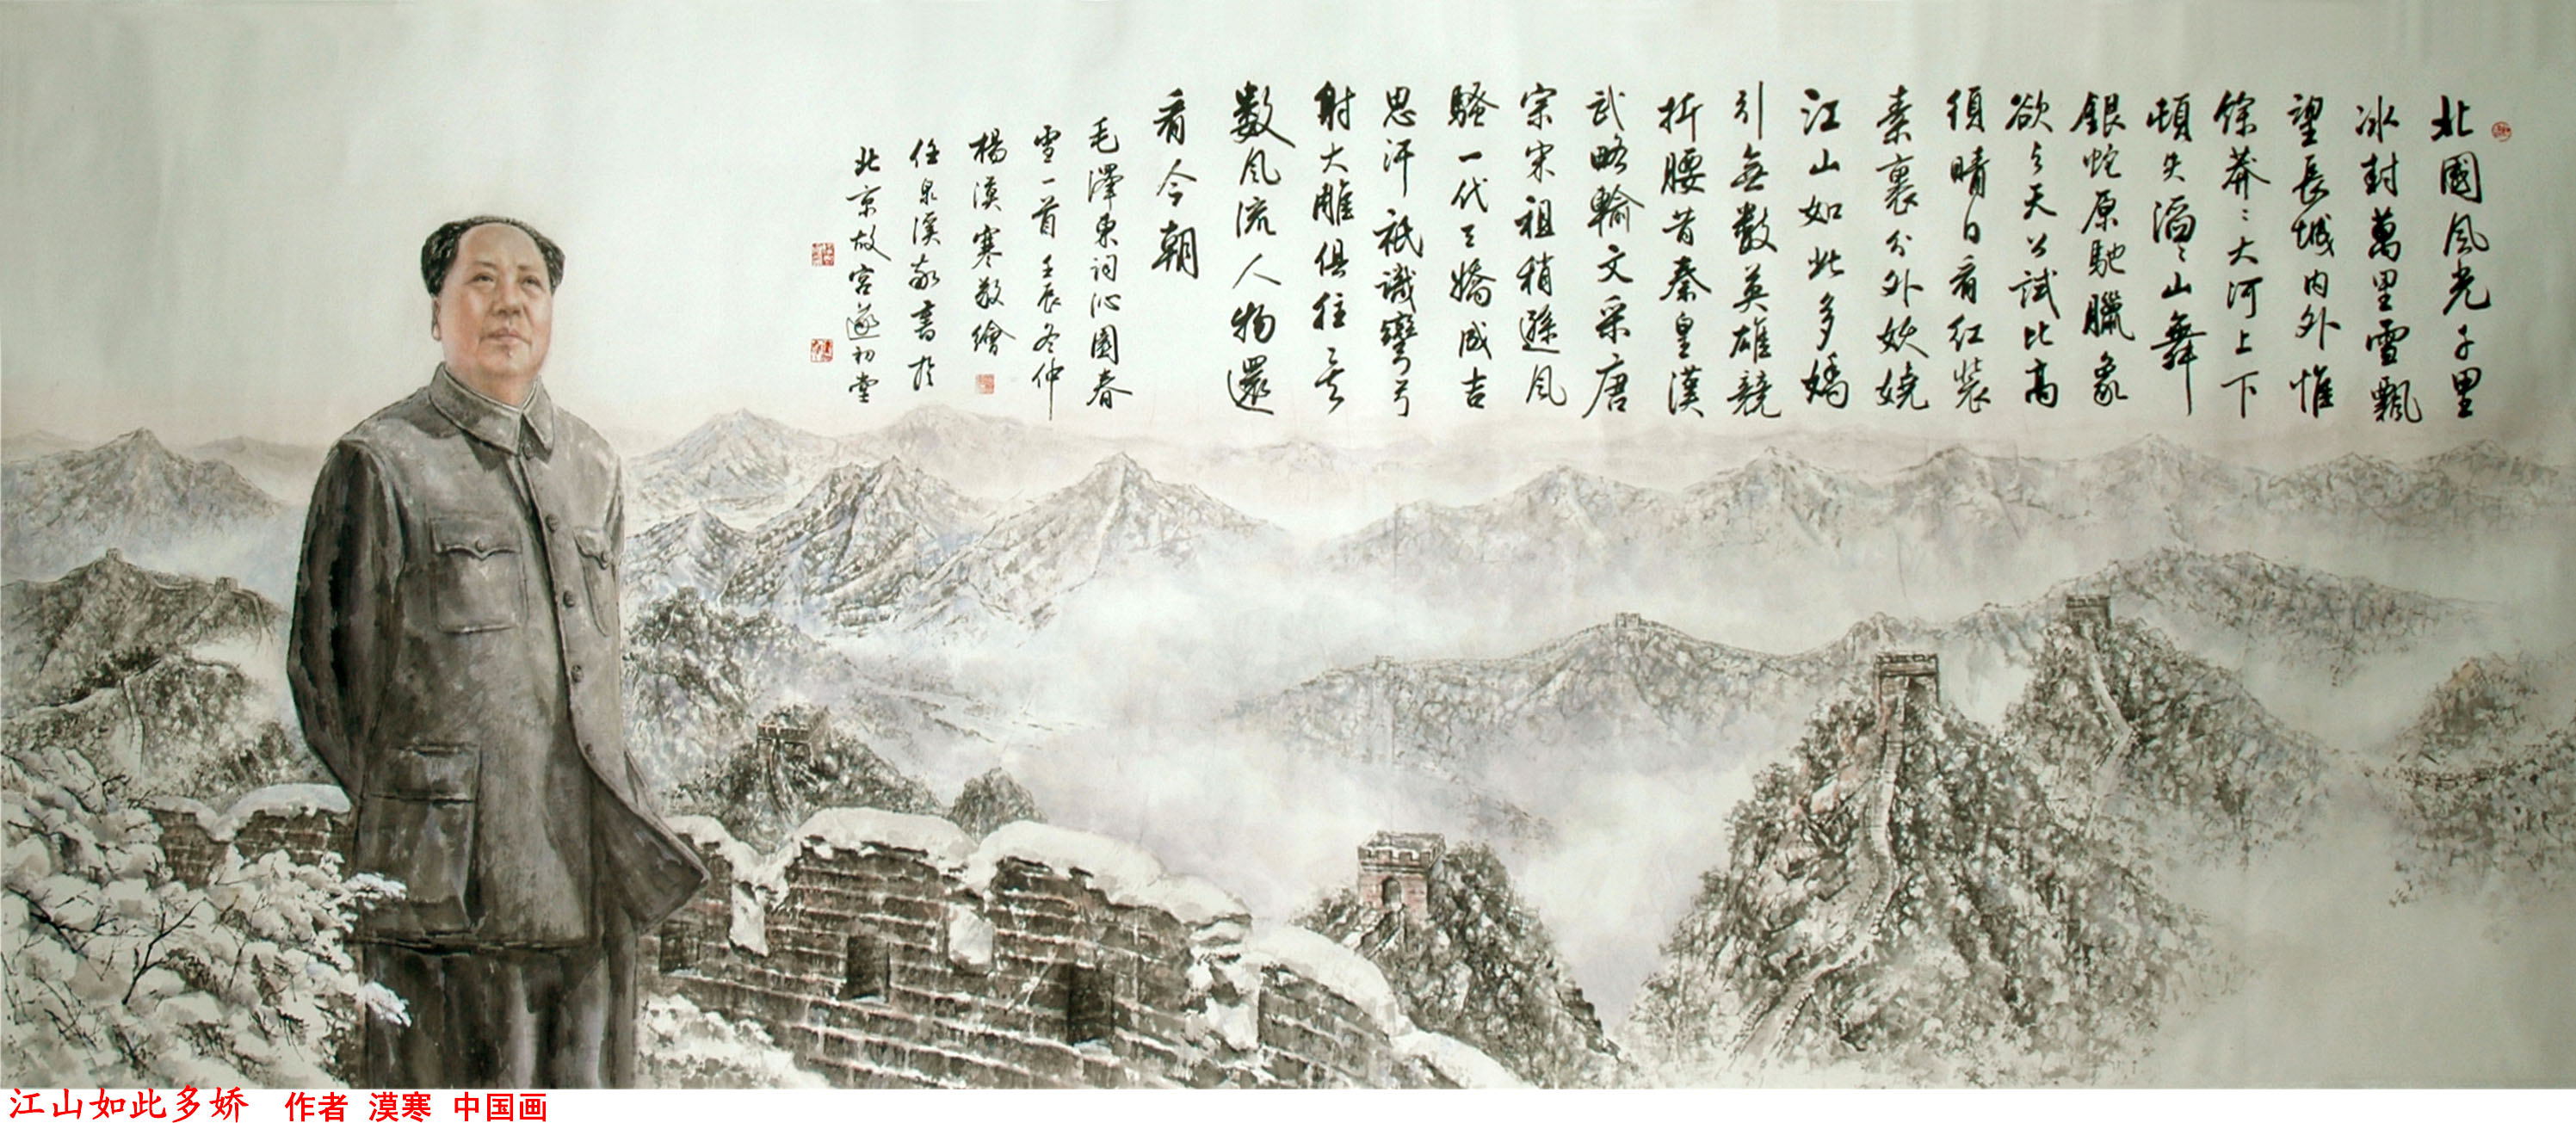 北國風光千里
冰封萬里雪飄
望長城内外惟
餘莽〻大河上下
頓失滔〻山舞
銀蛇原馳臘象
欲与天公試比高
須晴日看紅裝
素裹分外妖嬈
江山如此多嬌
引無數英雄競
折腰昔秦皇漢
武略輸文采唐
宗宋祖稍遜風
騷一代天嬌成吉
思汗祇識彎弓
射大雕俱往矣
数風流人物還
看今朝
毛澤東詞沁園春
雪一首壬辰冬仲
楊漠寒敬繪
任泉溪敬書於
北京故宮遂初堂
江山如此多娇 作者 漠寒 中国画